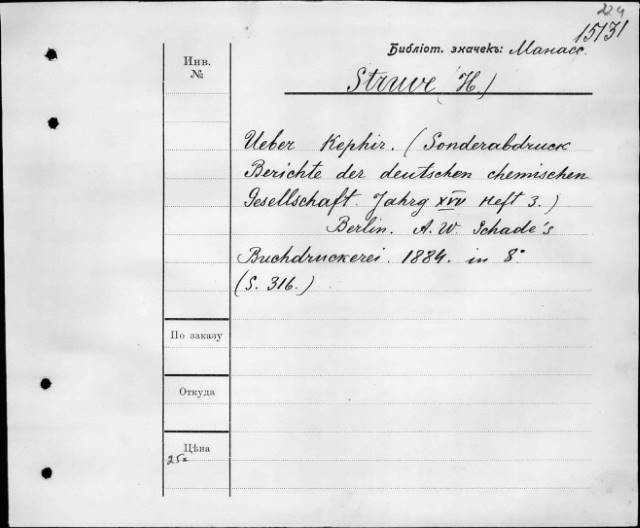 224
15131
Библіот. значекъ: Манасс.
Инв.
№
Struve (H.)
Ueber Kephir. (Sonderabdruck
Berichte der deutschen chemischen
Gesellschaft. Jahrg XVII Heft 3.)
Berlin. A. W. Schade's
Buchdruckerei. 1884. in 8°
(S. 316.)
По заказу
Откуда
Цѣна
25